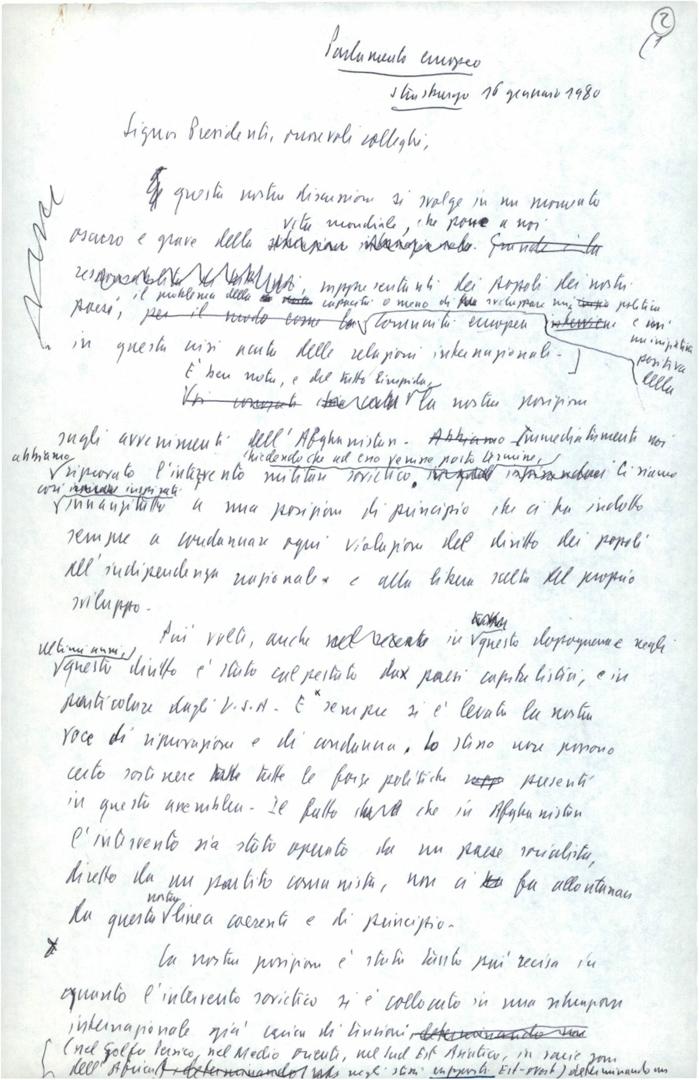 2
Parlamento europeo
Strasburgo 16 gennaio 1980
Signor Presidenti, onorevoli colleghi,
questa nostra discussione si svolge in un momento
vita mondiale, che pone a noi
oscuro e grave della situazione internazionale. Grande è la
responsabilità, rappresentanti dei popoli dei nostri
il problema della capacità o meno di sviluppare una politica
paesi, per il modo come la Comunità europea interviene e un'
iniziativa
positiva
della
in questa crisi acuta delle relazioni internazionali.
È ben nota, e del tutto limpida,
la nostra posizione
sugli avvenimenti dell'Afghanistan. Abbiamo Immediatamente noi
abbiamo
chiedendo che ad esso venisse posto termine,
riprovato l'intervento militare sovietico. Ci siamo
così inspirati
innanzitutto a una posizione di principio che ci ha indotto
sempre a condannare ogni violazione del diritto dei popoli
all'indipendenza nazionale e alla libera scelta del proprio
sviluppo.
Più volte, anche in questo dopoguerra e negli
ultimi anni,
questo diritto è stato calpestato da paesi capitalistici, e in
particolare dagli U.S.A. E sempre si è levata la nostra
voce di riprovazione e di condanna. Lo stesso non possono
certo sostenere tutte le forze politiche presenti
in questa assemblea. Il fatto che in Afghanistan
l'intervento sia stato operato da un paese socialista,
diretto da un partito comunista, non ci fa allontanare
nostra
da questa linea coerente e di principio.
La nostra posizione è stata tanto più recisa in
quanto l'intervento sovietico si è collocato in una situazione
internazionale già carica di tensioni determinando una
(nel Golfo Persico, nel Medio Oriente, nel Sud Est Asiatico, in varie zone
dell'Africa, determinando negli stessi rapporti Est-Ovest) determinando un